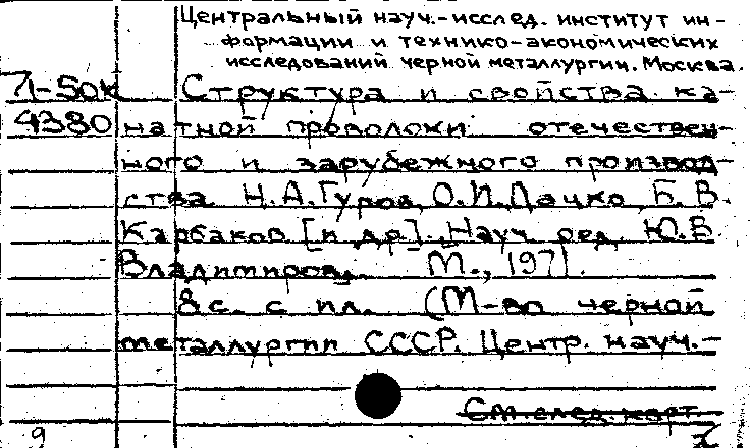 Центральный науч.-исслед. институт ин-
формации и технико-экономических
исследований черной металлургии. Москва.
Л-50к Структура и свойства ка-
9380 натной проволоки отечествен-
ного и зарубежного производ-
ства. Н.А.Гуров, О.И.Дачко, Б.В.
Карбаков [и др.]. Науч. ред. Ю.В.
Владимиров. М., 1971.
8с. с ил. (М-во черной
металлургии СССР. Центр. науч.-
См. след. карт.
9